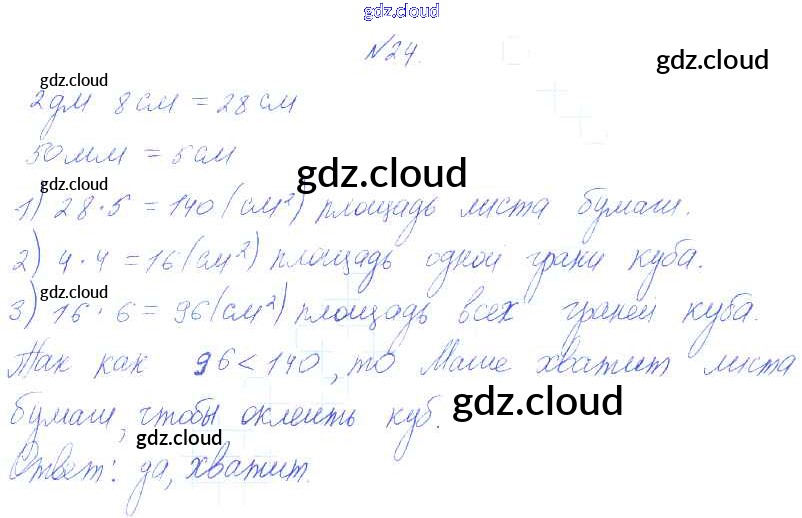 gdz.cloud
№24.
gdz.cloud
gdz.cloud
2дм 8см = 28см
50мм = 5см
gdz.cloud
gdz.cloud
1) 28·5 = 140(см²) площадь листа бумаги.
2) 4·4 = 16(см²) площадь одной грани куба.
gdz.cloud
3) 16·6 = 96(см²) площадь всех граней куба.
Так как 96 < 140, то Маше хватит листа
gdz.cloud
бумаги, чтобы оклеить куб.
gdz.cloud
Ответ: да, хватит.